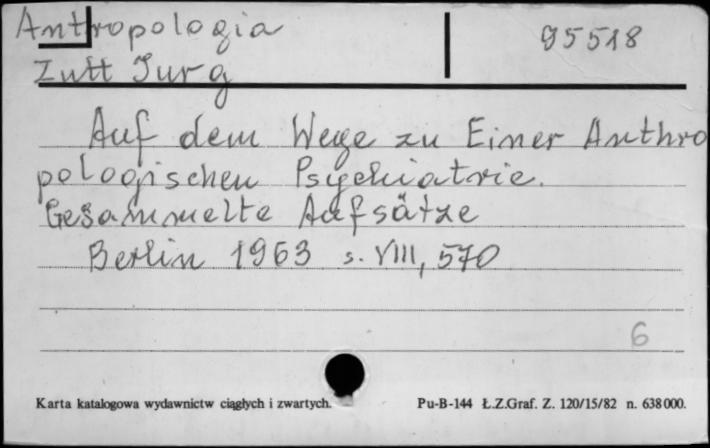 Antropologia 95518
Zutt Jurg
Auf dem Wege zu Einer Anthro
pologischen Psychiatrie.
Gesammelte Aufsätze
Berlin 1963 s. VIII, 570
6
Karta katalogowa wydawnictw ciągłych i zwartych. Pu-B-144 Ł.Z.Graf. Z. 120/15/82 n. 638000.